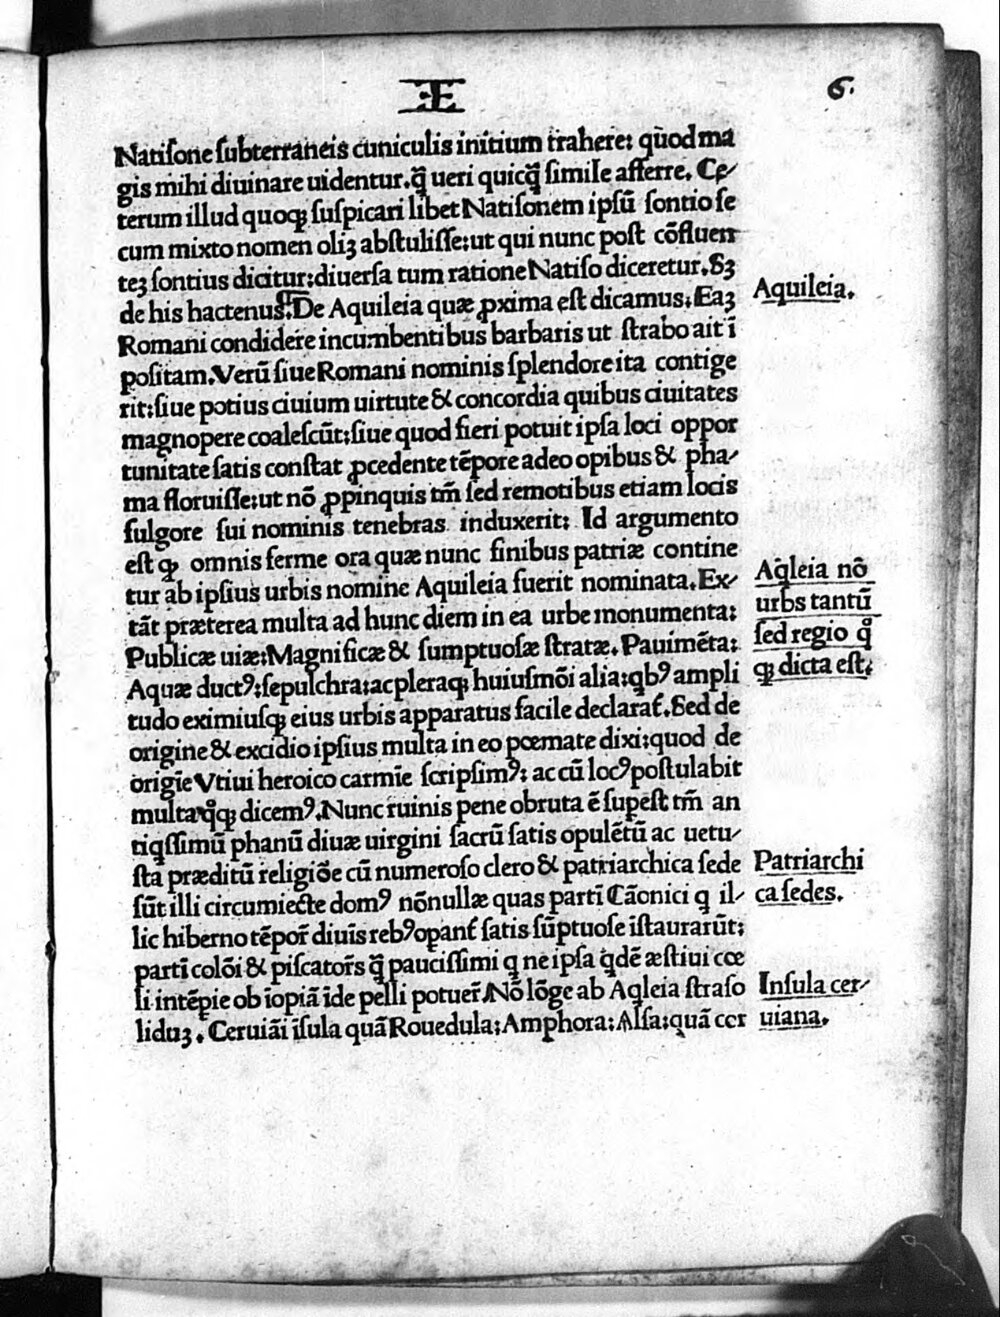 Æ
6.
Natiſone ſubterraneis cuniculis initium trahere: quod ma
gis mihi diuinare uidentur.q̃ ueri quicq̃ ſimile afferre. Cę-
terum illud quoqꝫ ſuſpicari libet Natiſonem ipſũ ſontio ſe
cum mixto nomen oliꝫ abſtuliſſe:ut qui nunc poſt cõfluen
teꝫ ſontius dicitur:diuerſa tum ratione Natiſo diceretur.Sꝫ
de his hactenus.De Aquileia quæ ꝓxima eſt dicamus.Eaꝫ
Romani condidere incumbentibus barbaris ut ſtrabo ait ĩ
poſitam.Verũ ſiue Romani nominis ſplendore ita contige
rit:ſiue potius ciuium uirtute & concordia quibus ciuitates
magnopere coaleſcũt:ſiue quod fieri potuit ipſa loci oppor
tunitate ſatis conſtat ꝓcedente tẽpore adeo opibus & pha-
ma floruiſſe:ut nõ ꝓpinquis tm̃ ſed remotibus etiam locis
fulgore ſui nominis tenebras induxerit: Id argumento
eſt qꝫ omnis ferme ora quæ nunc finibus patriæ contine
tur ab ipſius urbis nomine Aquileia fuerit nominata.Ex-
tãt præterea multa ad hunc diem in ea urbe monumenta:
Publicæ uiæ:Magnificæ & ſumptuoſæ ſtratæ.Pauimẽta:
Aquæ ductꝰ:ſepulchra:ac pleraqꝫ huiuſmõi alia:qbꝰ ampli
tudo eximiuſqꝫ eius urbis apparatus facile declarat᷑.Sed de
origine & excidio ipſius multa in eo pœmate dixi:quod de
origĩe Vtiui heroico carmĩe ſcripſimꝰ: ac cũ locꝰ poſtulabit
multa q̊qꝫ dicemꝰ.Nunc ruinis pene obruta ẽ ſupeſt tm̃ an
tiqſſimũ phanũ diuæ uirgini ſacrũ ſatis opulẽtũ ac uetu-
ſta præditũ religiõe cũ numeroſo clero & patriarchica ſede
ſũt illi circumiecte domꝰ nõnullæ quas partĩ Cãonici q il-
lic hiberno tẽpor̃ diuis rebꝰ opant᷑ ſatis ſũptuoſe iſtaurarũt:
partĩ colõi & piſcator̃s q̃ pauciſſimi q ne ipſa q̇dẽ æſtiui cœ
li intẽpie ob ĩopiã ĩde pelli potuer̃.Nõ lõge ab Aqleia ſtraſo
liduꝫ. Ceruiãi ĩſula quã Rouedula:Amphora:Alſa:quã cer
Aquileia.
Aqleia nõ
urbs tantũ
ſed regio q̊
qꝫ dicta eſt.
Patriarchi
ca ſedes.
Inſula cer-
uiana.